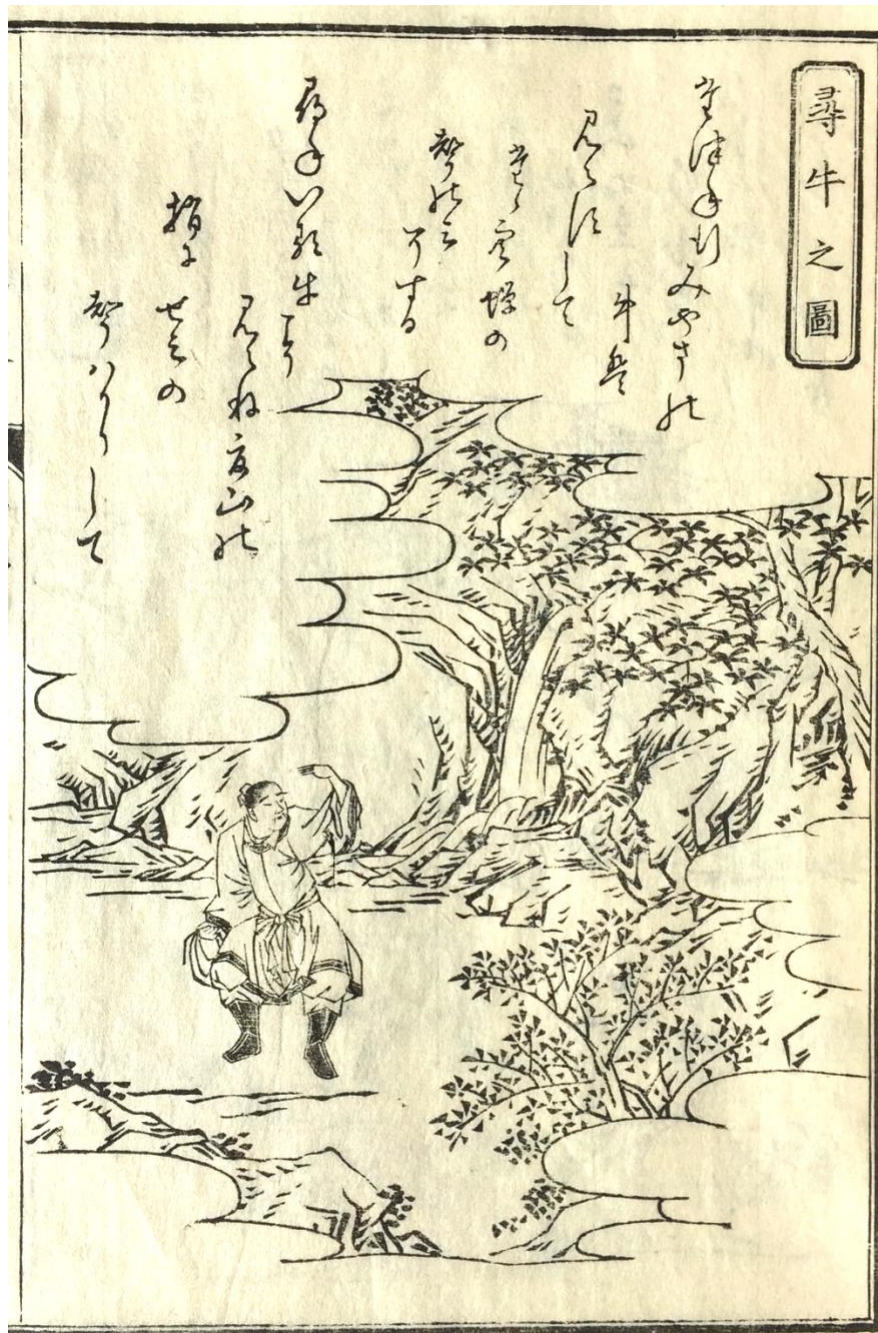 尋牛之圖
たつね行みやまの
牛は
見えすして
たゝ空蝉の
聲のみ
そする
尋ねいる牛こそ
見えね夏山の
梢にせみの
聲はかりして